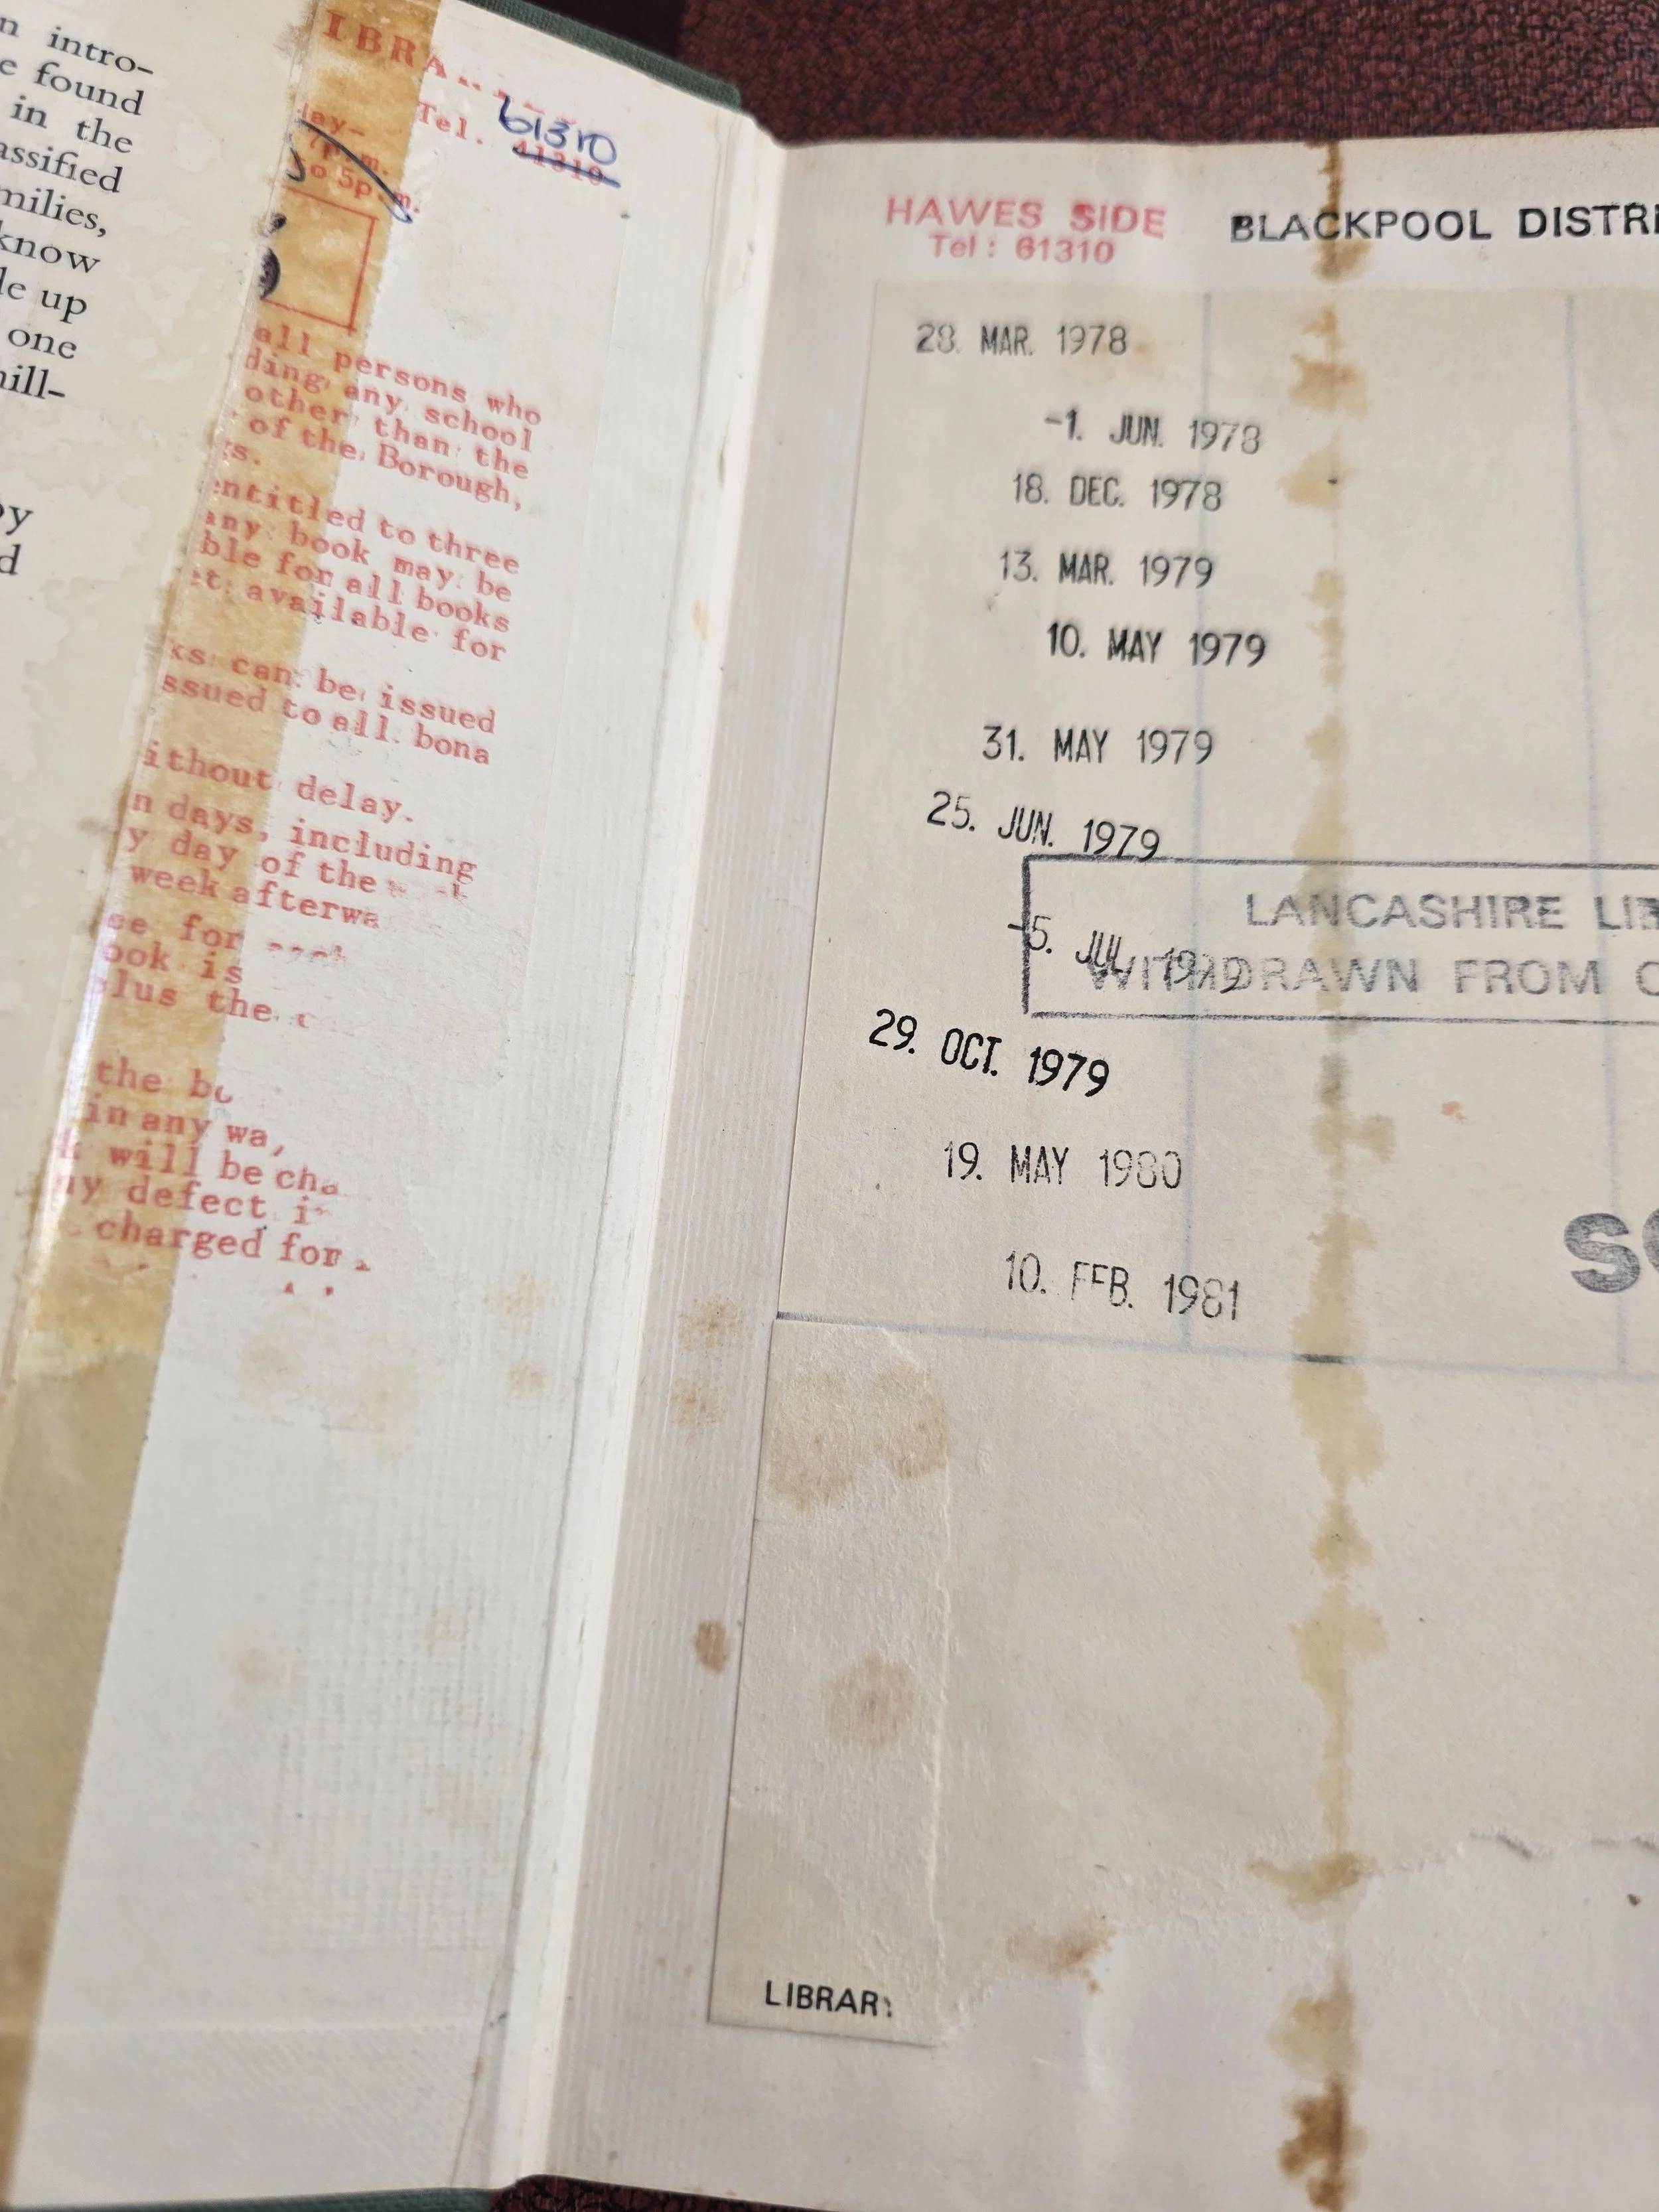 n intro-
e found
in the
assified
milies,
know
le up
one
ill-
by
d
IBRA
Tel. 61310
41310
day-
7p.m.
o 5p.m.
all persons who
ding any school
other than the
of the Borough,
gs.
entitled to three
any book may be
ble for all books
et available for
ks can be issued
ssued to all bona
ithout delay.
n days, including
y day of the
week afterwa
ee for
ook is
plus the
the bo
in any wa
k will be cha
ny defect i
charged for
HAWES SIDE
Tel: 61310
BLACKPOOL DISTRI
28. MAR. 1978
-1. JUN. 1978
18. DEC. 1978
13. MAR. 1979
10. MAY 1979
31. MAY 1979
25. JUN. 1979
LANCASHIRE LIB
-5. JUL. 1979
WITHDRAWN FROM C
29. OCT. 1979
19. MAY 1980
SO
10. FEB. 1981
LIBRARY